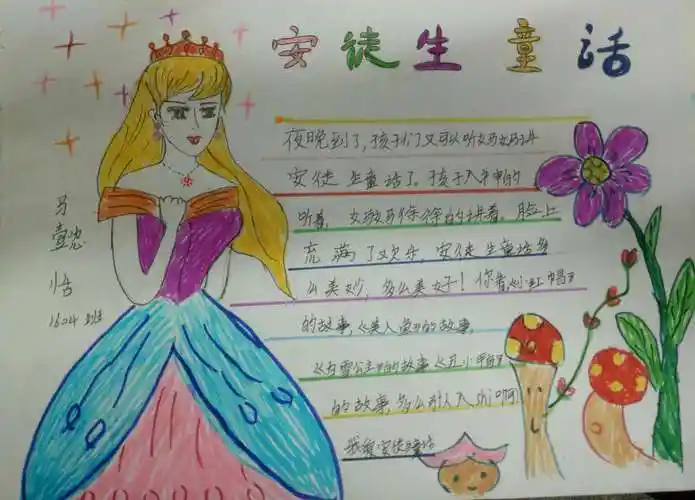 安徒生童话
夜晚到了,孩子们又可以听妈妈讲
安徒生童话了。孩子入神的
听着,妈妈徐徐的讲着。脸上
充满了欢乐,安徒生童话多
么美妙,多么美好!你看《小红帽》
的故事,《美人鱼》的故事,
《白雪公主》的故事《
的故事,多么引人入
我爱安徒生童话
马
怡
1604班